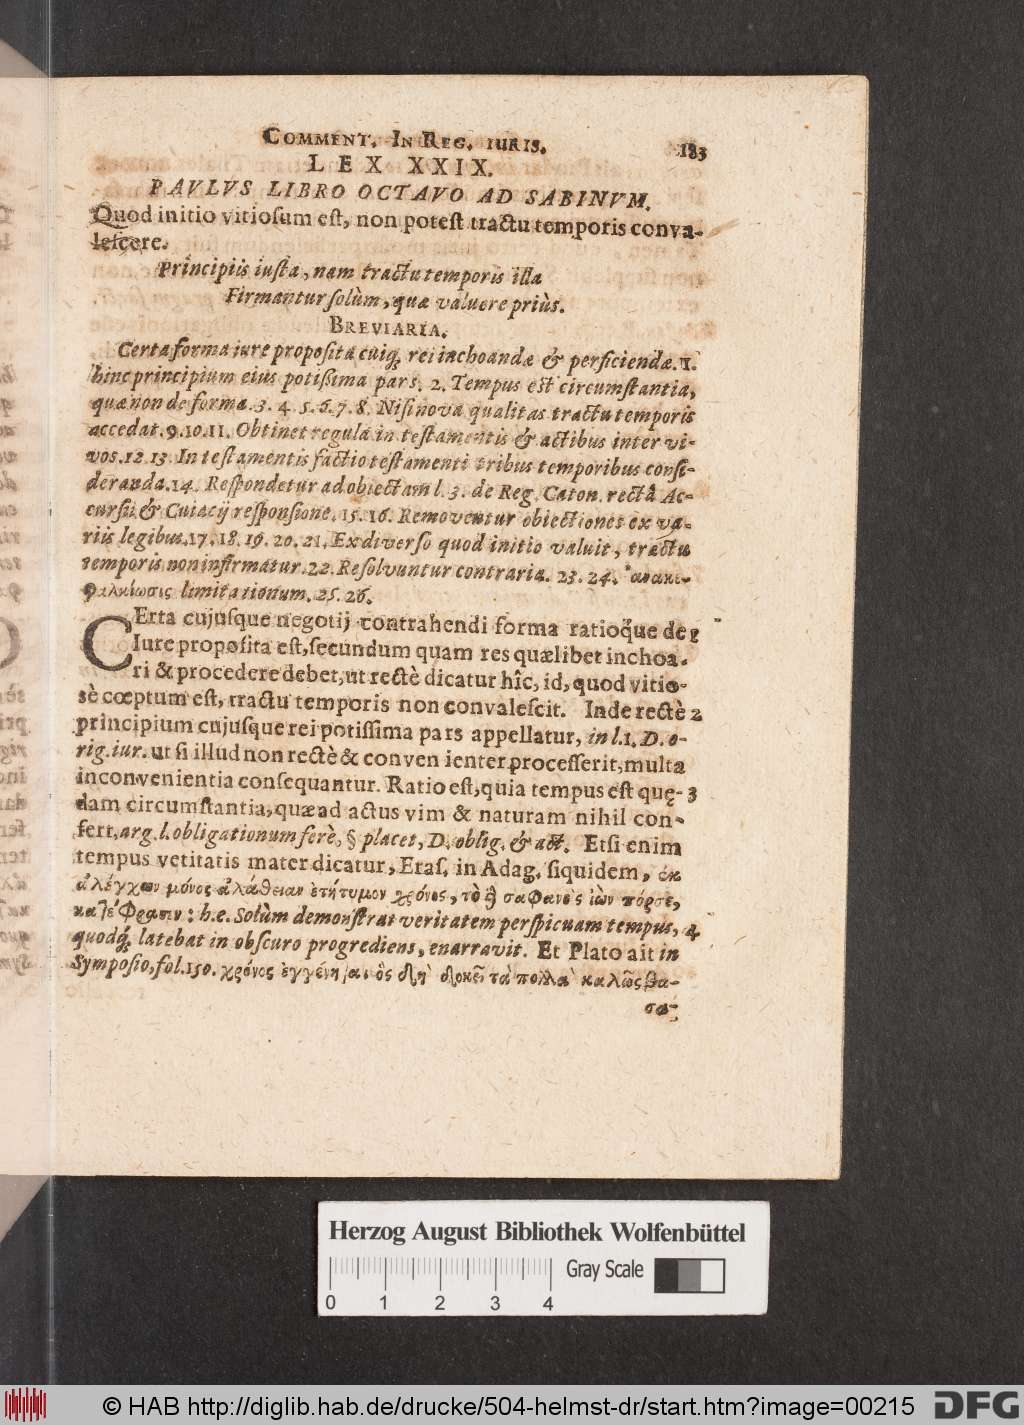 COMMENT. IN REG. IURIS. 183
LEX XXIX.
PAVLVS LIBRO OCTAVO AD SABINVM.
Quod initio vitiosum est, non potest tractu temporis conva-
lescere.
Principiis iusta, nam tractu temporis illa
Firmantur solùm, quæ valuere priùs.
BREVIARIA.
Certa forma iure proposita cuiq; rei inchoandæ & perficiendæ. 1.
hinc principium eius potißima pars. 2. Tempus est circumstantia,
quæ non de forma. 3. 4. 5. 6. 7. 8. Nisi nova qualitas tractu temporis
accedat. 9. 10. 11. Obtinet regula in testamentis & actibus inter vi-
vos. 12. 13. In testamentis factio testamenti tribus temporibus consi-
deranda. 14. Respondetur ad obiectam l. 3. de Reg. Caton. rectâ Ac-
cursii & Cuiacij responsione. 15. 16. Removentur obiectiones ex va-
riis legibus. 17. 18. 19. 20. 21. Ex diverso quod initio valuit, tractu
temporis non infirmatur. 22. Resolvuntur contraria. 23. 24. ἀνακε-
φαλαίωσις limitationum. 25. 26.
CErta cujusque negotij contrahendi forma ratioq́ue de 1
Iure proposita est, secundum quam res quælibet inchoa-
ri & procedere debet, ut rectè dicatur hîc, id, quod vitio-
sè cœptum est, tractu temporis non convalescit. Inde rectè 2
principium cujusque rei potissima pars appellatur, in l. 1. D. o-
rig. iur. ut si illud non rectè & conven ienter processerit, multa
inconvenientia consequantur. Ratio est, quia tempus est quę- 3
dam circumstantia, quæ ad actus vim & naturam nihil con-
fert, arg. l. obligationum ferè, § placet, D. oblig. & act. Etsi enim
tempus vetitatis mater dicatur, Eras. in Adag. siquidem, ἐκ
μόνος ἐτήτυμον χρόνος, ἰὼν
: h.e. Solùm demonstrat veritatem perspicuam tempus, 4
quodq́; latebat in obscuro progrediens, enarravit. Et Plato ait in
Symposio, fol. 150. χρόνος ὃς δὴ δοκεῖ τὰ πολλὰ καλῶς βα-
σα-
Herzog August Bibliothek Wolfenbüttel
Gray Scale
0 1 2 3 4
© HAB http://diglib.hab.de/drucke/504-helmst-dr/start.htm?image=00215 DFG